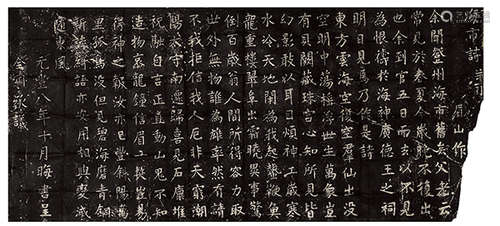 海市詩 并引 眉山作
余聞登州海市舊矣父老云
常見於春夏今歲晚不復出
也余到官五日而去以不見
為恨禱於海神廣德王之祠
明日見焉乃作是詩
東方雲海空復空群仙出沒
空明中蕩搖浮世生萬象豈
有貝闕藏珠宮心知所見皆
幻影敢以耳目煩神工歲寒
水冷天地閉為我起蟄鞭魚
龍重樓翠阜出霜曉異事驚
倒百歲翁人間所得容力取
世外無物誰為雄率然有請
不我拒信我人厄非天窮潮
陽太守南遷歸喜見石廩堆
祝融自言正直動山鬼不知
造物哀龍鍾信眉一笑豈易
得神之報汝亦已豐斜陽萬
里孤鳥沒但見碧海磨青銅
新詩綺語亦安用相與變滅
隨東風
元豐八年十月晦書呈
全叔承議